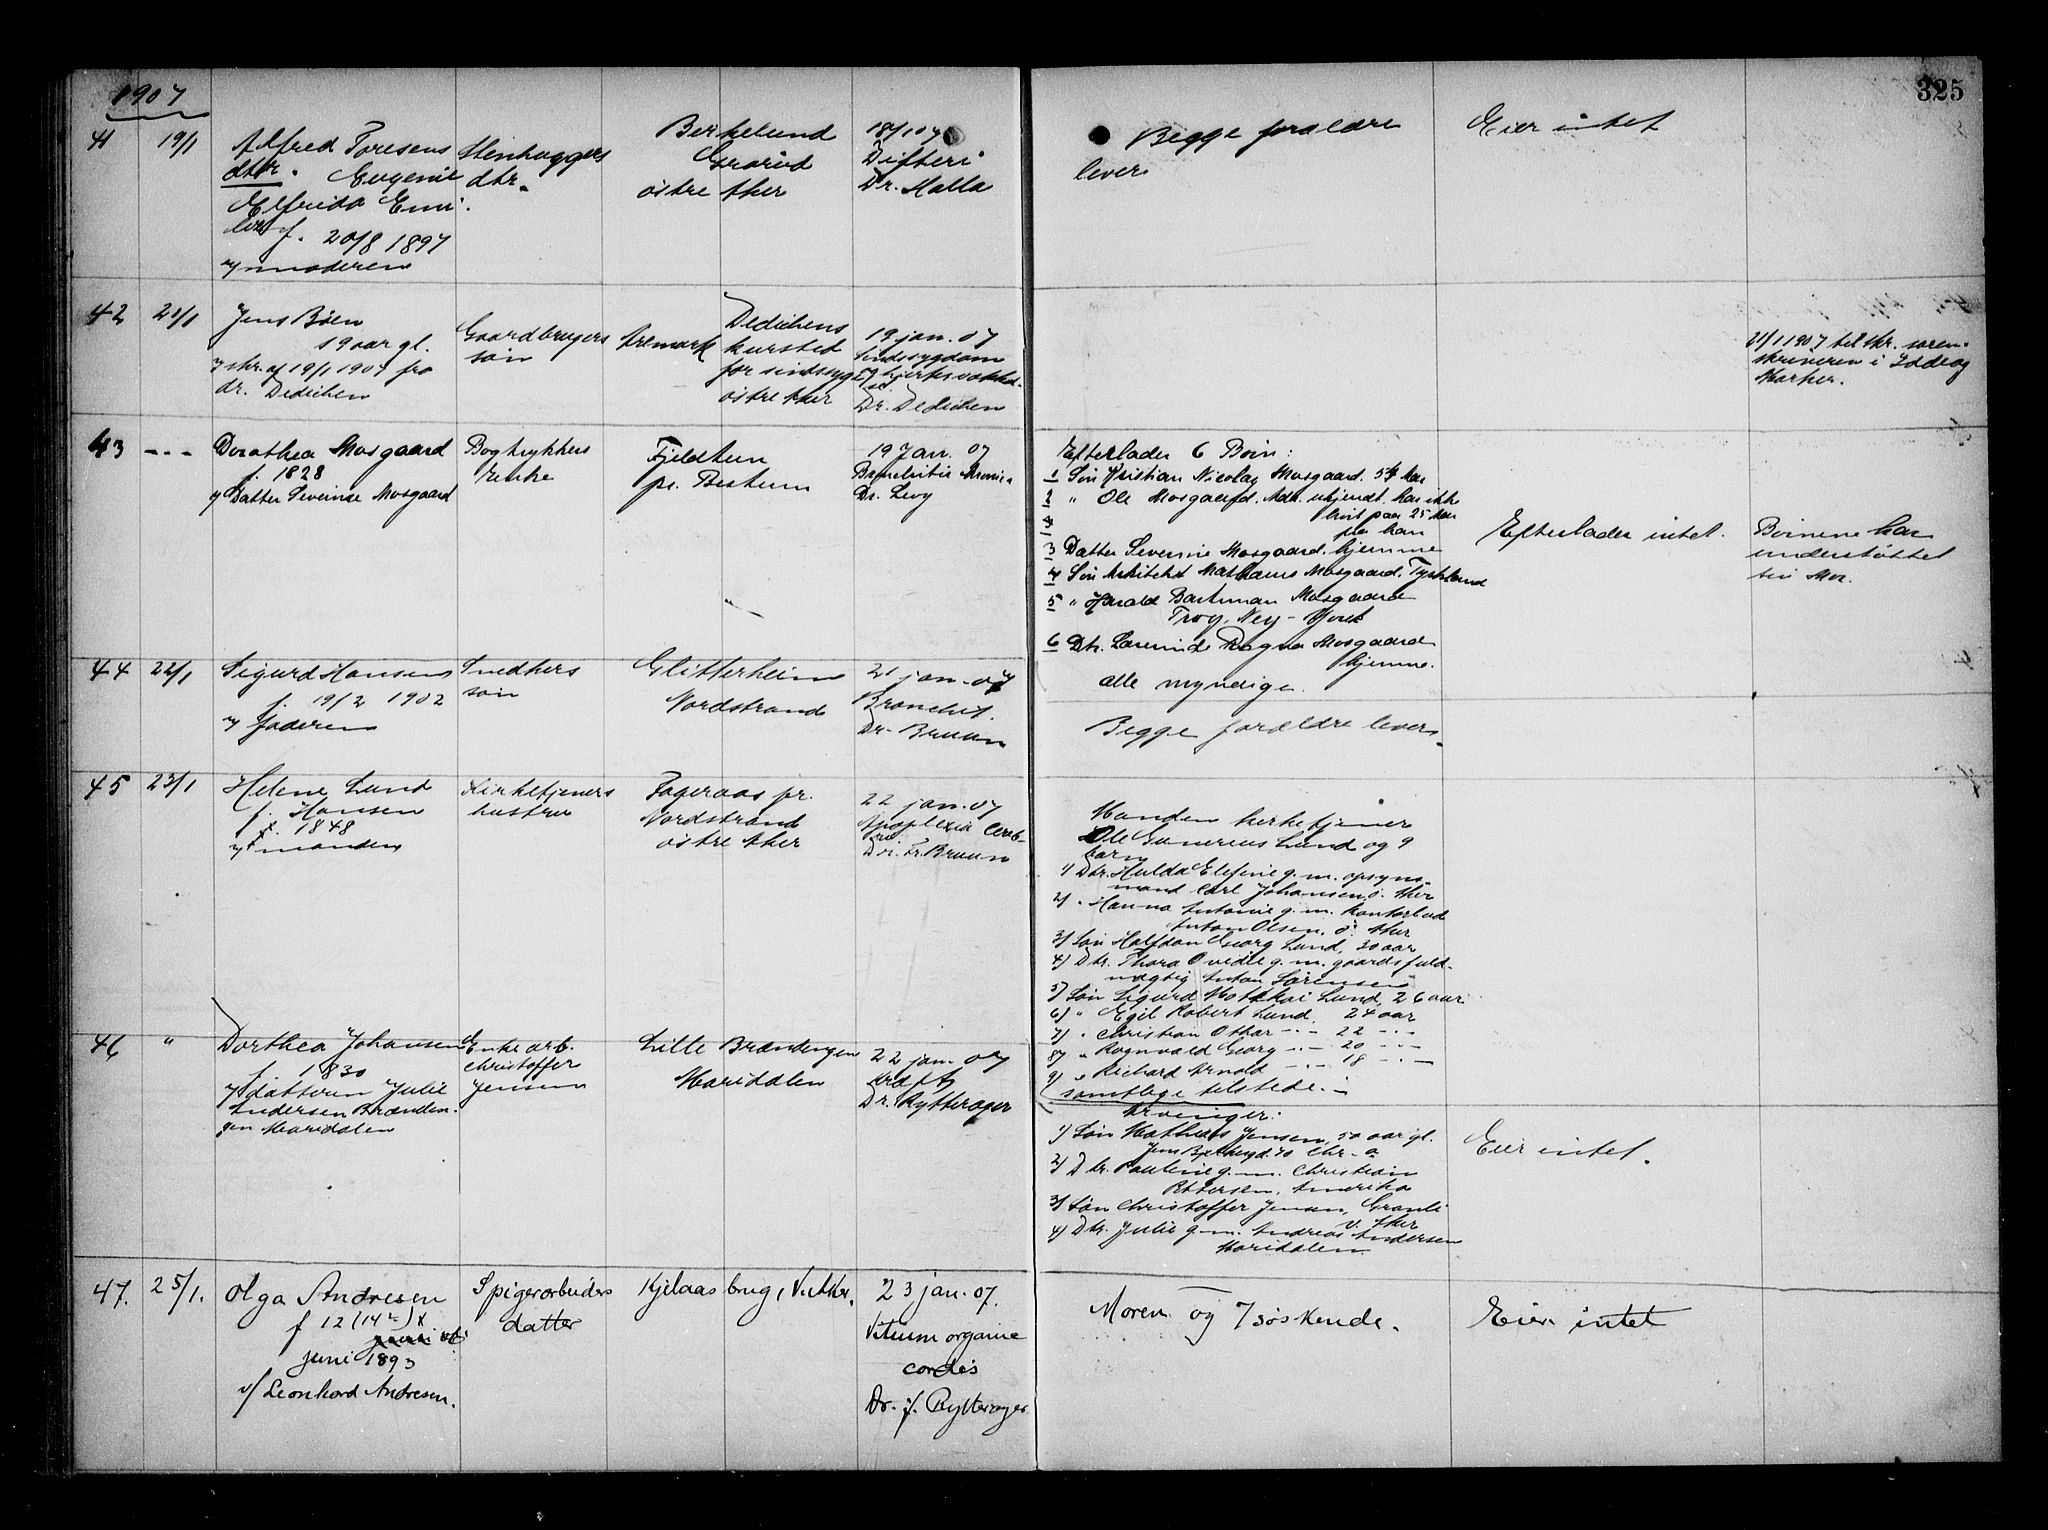 1907
325
41
19/1
Alfred Toresens
dtr. Eugenie
Elfrida Emi-
lie f. 20/8 1897
v/ moderen
Stenhuggers
dtr.
Birkelund
Grorud
östre Aker
18/1 07
Difteri
Dr. Malla
Begge forældre
lever
Eier intet
42
21/1
Jens Böen
19 aar gl.
v/ skr. af 19/1 1907 fra
dr. Dedichen
Gaardbrugers
sön
Aremark
Dedichens
kursted
for sindssyge
östre Aker
19 jan. 07
Sindssygdom
og hjertesvækkel-
se
Dr. Dedichen
21/1 1907 til skr. soren-
skriveren i Idd og
Marker.
43
- - -
Dorothea Mosgaard
f. 1828
v/ Datter Severine Mosgaard
Bogtrykkers
Enke
Fjeldtun
pr. Bestum
19 Jan. 07
Bronchitis chronica
Dr. Levy
Efterlader 6 Börn:
1 Sön Kristian Nicolay Mosgaard. 54 Aar
2 " Ole Mosgaard. Adr. ukjendt. har ikke
hørt paa 25 Aar
fra ham
3 Datter Severine Mosgaard. hjemme
4 Sön Arkitekt Mathæus Mosgaard. Tyskland
5 " Harald Bachman Mosgaard
Troy, Ney-York
6 Dtr. Ragna Mosgaard
hjemme.
alle myndige.
Efterlader intet.
Börnene har
understöttet
sin Mor.
44
22/1
Sigurd Hansen
f. 19/2 1902
v/ faderen
Snedkers
sön
Glitterheim
Nordstrand
21 jan. 07
Bronchit.
Dr. Bruun
Begge forældre lever.
45
23/1
Helene Lund
f. Hansen
f. 1848
v/ manden
Kirketjeners
hustru
Fageraas pr.
Nordstrand
östre Aker
22 jan. 07
Apoplexia cereb-
ri
Dr. Fr. Bruun
Manden kirketjener
Ole Gunerius Lund og 9
barn
1) Dtr. Hulda Elefine g. m. opsyns-
mand Carl Johansen ö. Aker
2) " Hanna Antonie g. m. kontorbud
Anton Olsen, ö. Aker
3) Sön Halfdan Georg Lund, 30 aar
4) Dtr. Thora Ovedie g. m. gaardsfuld-
mægtig Anton Sörensen
5) Sön Sigurd Mottkai Lund, 26 aar
6) " Egil Robert Lund 24 aar
7) " Christian Othar -"- 22 -"-
8) " Rognvald Georg -"- 20 -"-
9) " Richard Arnold -"- 18 -"-
samtlige tilstede.
46
"
Dorthea Johansen
f. 1830
v/ datteren Julie
Andersen Brænden-
gen Maridalen
Enke arb.
Christoffer
Jensen
Lille Brændengen
Maridalen
22 jan 07
Dr. Rytterager
Arvinger:
1) Sön Mathias Jensen, 50 aar gl.
Jens Bjelkesgd. 70 Chr.a
2) Dtr. Pauline g. m. Christian
Pettersen, Amerika
3) Sön Christoffer Jensen, Granli
V. Aker
4) Dtr. Julie g. m. Andreas Andersen
Maridalen
Eier intet.
47.
25/1.
Olga Andresen
f 12 (14de) x
juni 1893
v/ Leonhard Andresen.
Spigerarbeiders
datter
Kjelsaas brug, V. Aker.
23 jan. 07.
Vitium organic
cordis
Dr. J. Rytterager
Moren og 7 söskende.
Eier intet